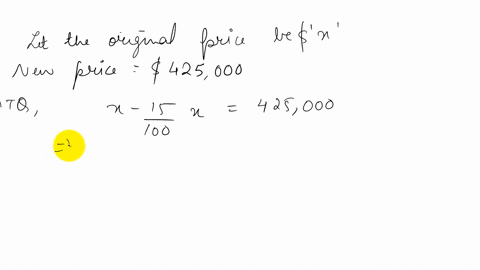 Let the original price be $'x'
New price = $ 425,000
ATQ, x - 15/100 x = 425,000
=>